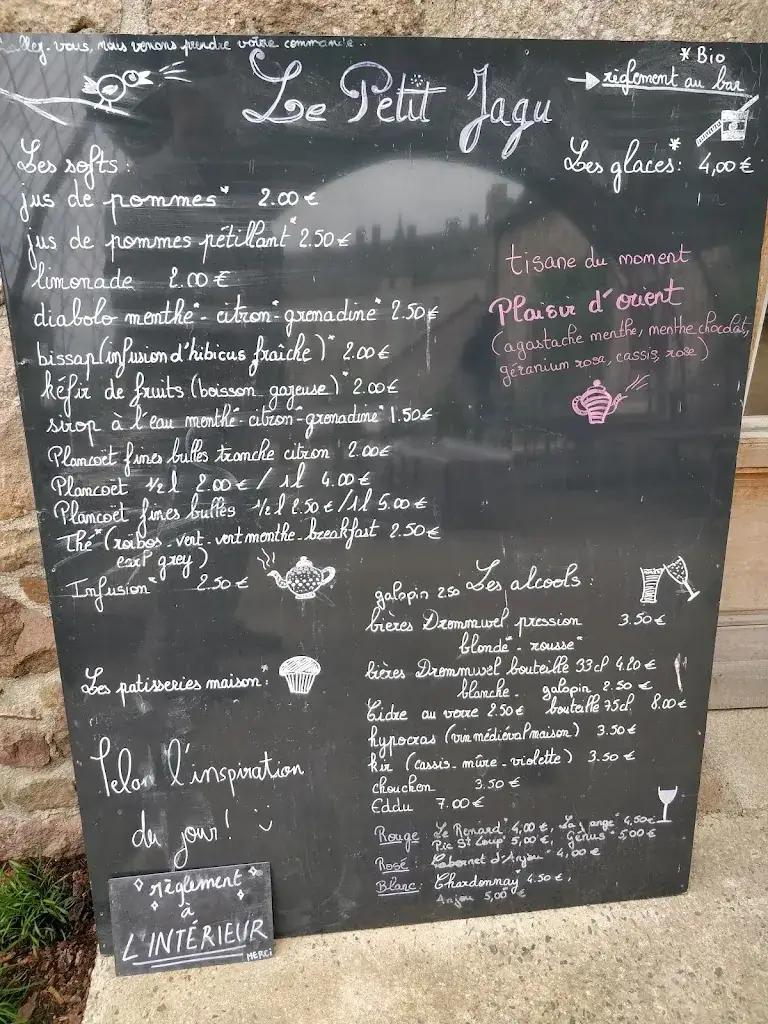 allez-vous, nous venons prendre votre commande..
* Bio
règlement au bar
Le Petit Jagu
Les softs :
jus de pommes* 2.00 €
jus de pommes pétillant* 2.50 €
limonade 2.00 €
diabolo menthe* - citron* - grenadine* 2.50 €
bissap (infusion d'hibicus fraîche)* 2.00 €
kéfir de fruits (boisson gazeuse)* 2.00 €
sirop à l'eau menthe* - citron* - grenadine* 1.50 €
Plancoët fines bulles tranche citron 2.00 €
Plancoët ½ l 2.00 € / 1l 4.00 €
Plancoët fines bulles ½ l 2.50 € / 1l 5.00 €
Thé* (roïbos - vert - vert menthe - breakfast 2.50 €
earl grey)
Infusion* 2.50 €
Les glaces* : 4,00 €
tisane du moment
Plaisir d'orient
(agastache menthe, menthe chocolat,
géranium rosa, cassis, rose)
Les patisseries maison* :
Selon l'inspiration
du jour !
galopin 2.50 Les alcools :
bières Drommwel pression 3.50 €
blonde* - rousse*
bières Drommwel bouteille 33cl 4.20 €
blanche - galopin 2.50 €
Cidre au verre 2.50 € bouteille 75cl 8.00 €
hypocras (vin médiéval maison) 3.50 €
kir (cassis - mûre - violette) 3.50 €
chouchen 3.50 €
Eddu 7.00 €
Rouge : Le Renard* 4,00 €, 4,50 €
Pic St Loup* 5,00 €, Génus* 5,00 €
Rosé : Cabernet d'Anjou* 4,00 €
Blanc : Chardonnay* 4.50 €,
Anjou 5,00 €
règlement
à
L'INTÉRIEUR
MERCI